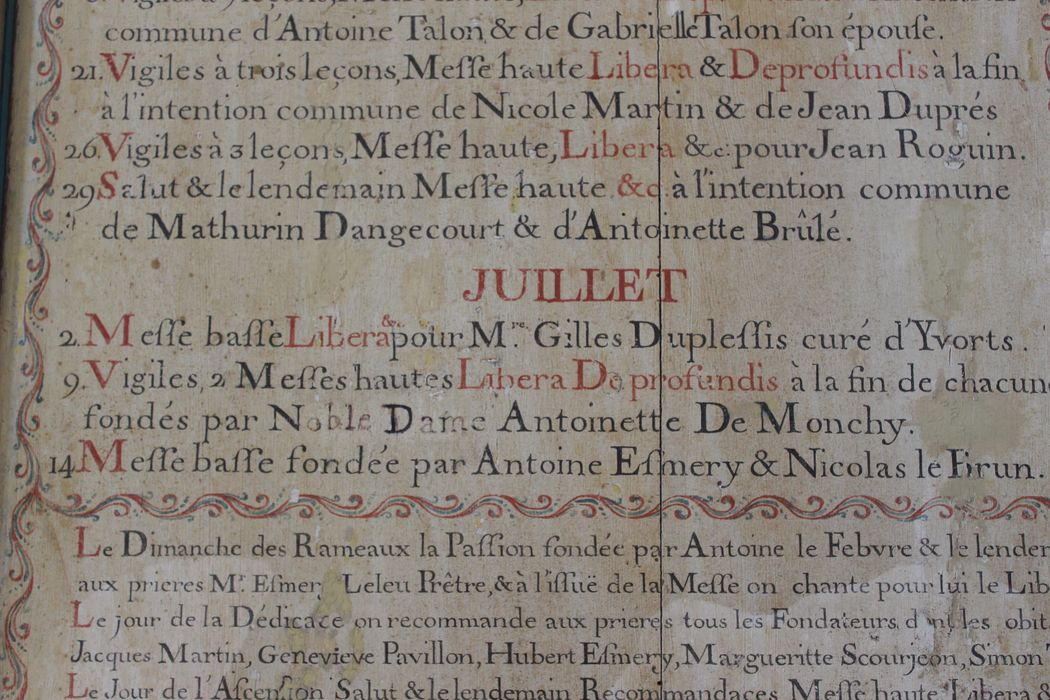 commune d'Antoine Talon & de Gabrielle Talon ſon épouſe.
21. Vigiles à trois leçons, Meſſe haute Libera & Deprofundis à la fin
à l'intention commune de Nicole Martin & de Jean Duprés
26. Vigiles à 3 leçons, Meſſe haute, Libera &c. pour Jean Roguin.
29 Salut & le lendemain Meſſe haute &c. à l'intention commune
de Mathurin Dangecourt & d'Antoinette Brûlé.
JUILLET
2. Meſſe baſſe Libera &c pour M.re Gilles Dupleſſis curé d'Yvorts.
9. Vigiles, 2 Meſſes hautes Libera De profundis à la fin de chacun
fondés par Noble Dame Antoinette De Monchy.
14. Meſſe baſſe fondée par Antoine Eſmery & Nicolas le Brun.
Le Dimanche des Rameaux la Paſſion fondée par Antoine le Febvre & le lender
aux prieres Mr. Eſmery Leleu Prêtre, & à l'iſſuë de la Meſſe on chante pour lui le Lib
Le jour de la Dédicace on recommande aux prieres tous les Fondateurs, les obit
Jacques Martin, Genevieve Pavillon, Hubert Eſmery, Margueritte Scourjeon, Simon
Le Jour de l'Aſcenſion Salut & le lendemain Recommandaces Meſſe haute Libera &